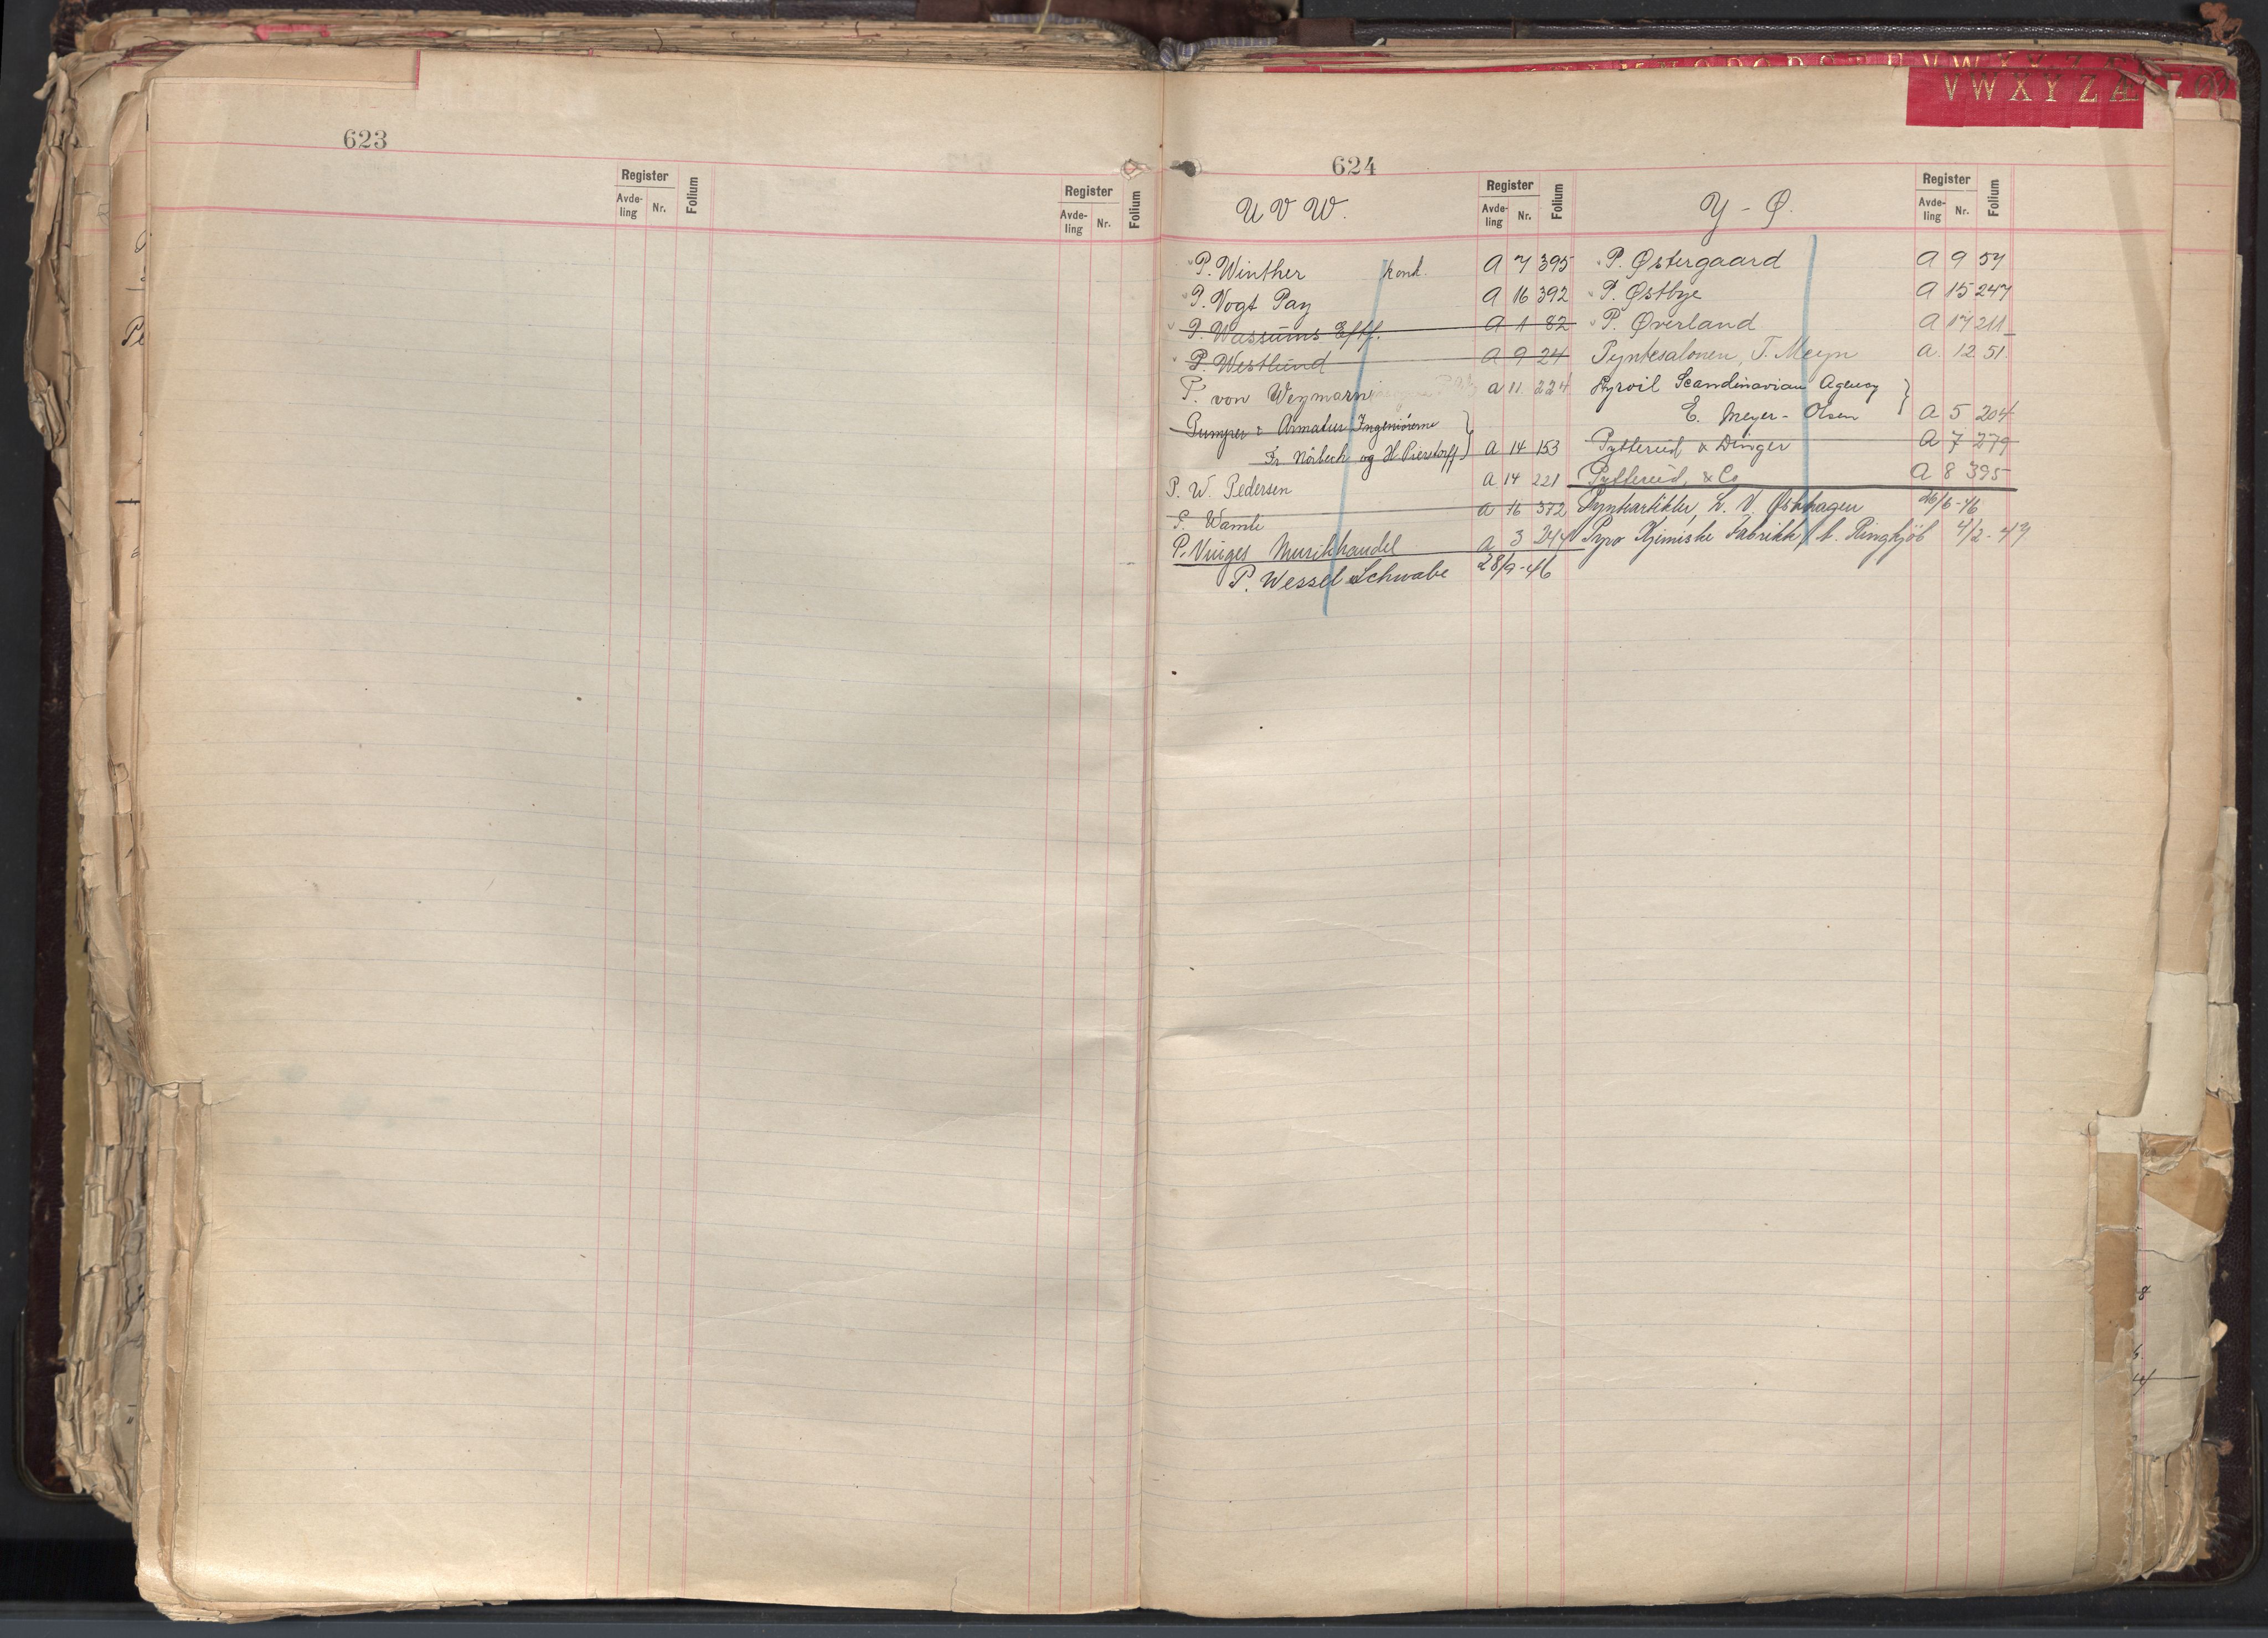 V W X Y Z Æ
623
Register
Avde-ling Nr. Folium
Register
Avde-ling Nr. Folium
624
U V W.
Register
Avde-ling Nr. Folium
P. Winther konk. A 7 395
P. Vogt Pay A 16 392
P. Wassums Eftf. A 1 82
P. Westlund A 9 24
P. von Weymarn A 11 224
Pumper & Armatur Ingeniørerne
Fr Nörbech og H Pierstorff A 14 153
P. W. Pedersen A 14 221
P. Wamli A 16 372
P. Vinges Musikkhandel A 3 244
P. Wessel Schwabe 28/9-46
Y - Ø.
Register
Avde-ling Nr. Folium
P. Østergaard A 9 57
P. Østbye A 15 247
P. Øverland A 17 211
Pyntesalonen, T. Meyn A. 12 51.
Pyroil Scandinavian Agency
E. Meyer-Olsen A 5 204
Pyttereid & Dinger A 7 279
Pyttereid & Co A 8 395
Pyntartikler, L. V. Østhagen 26/6-46
Pyro Kjemiske Fabrikk, Ringkjöb 4/2-47